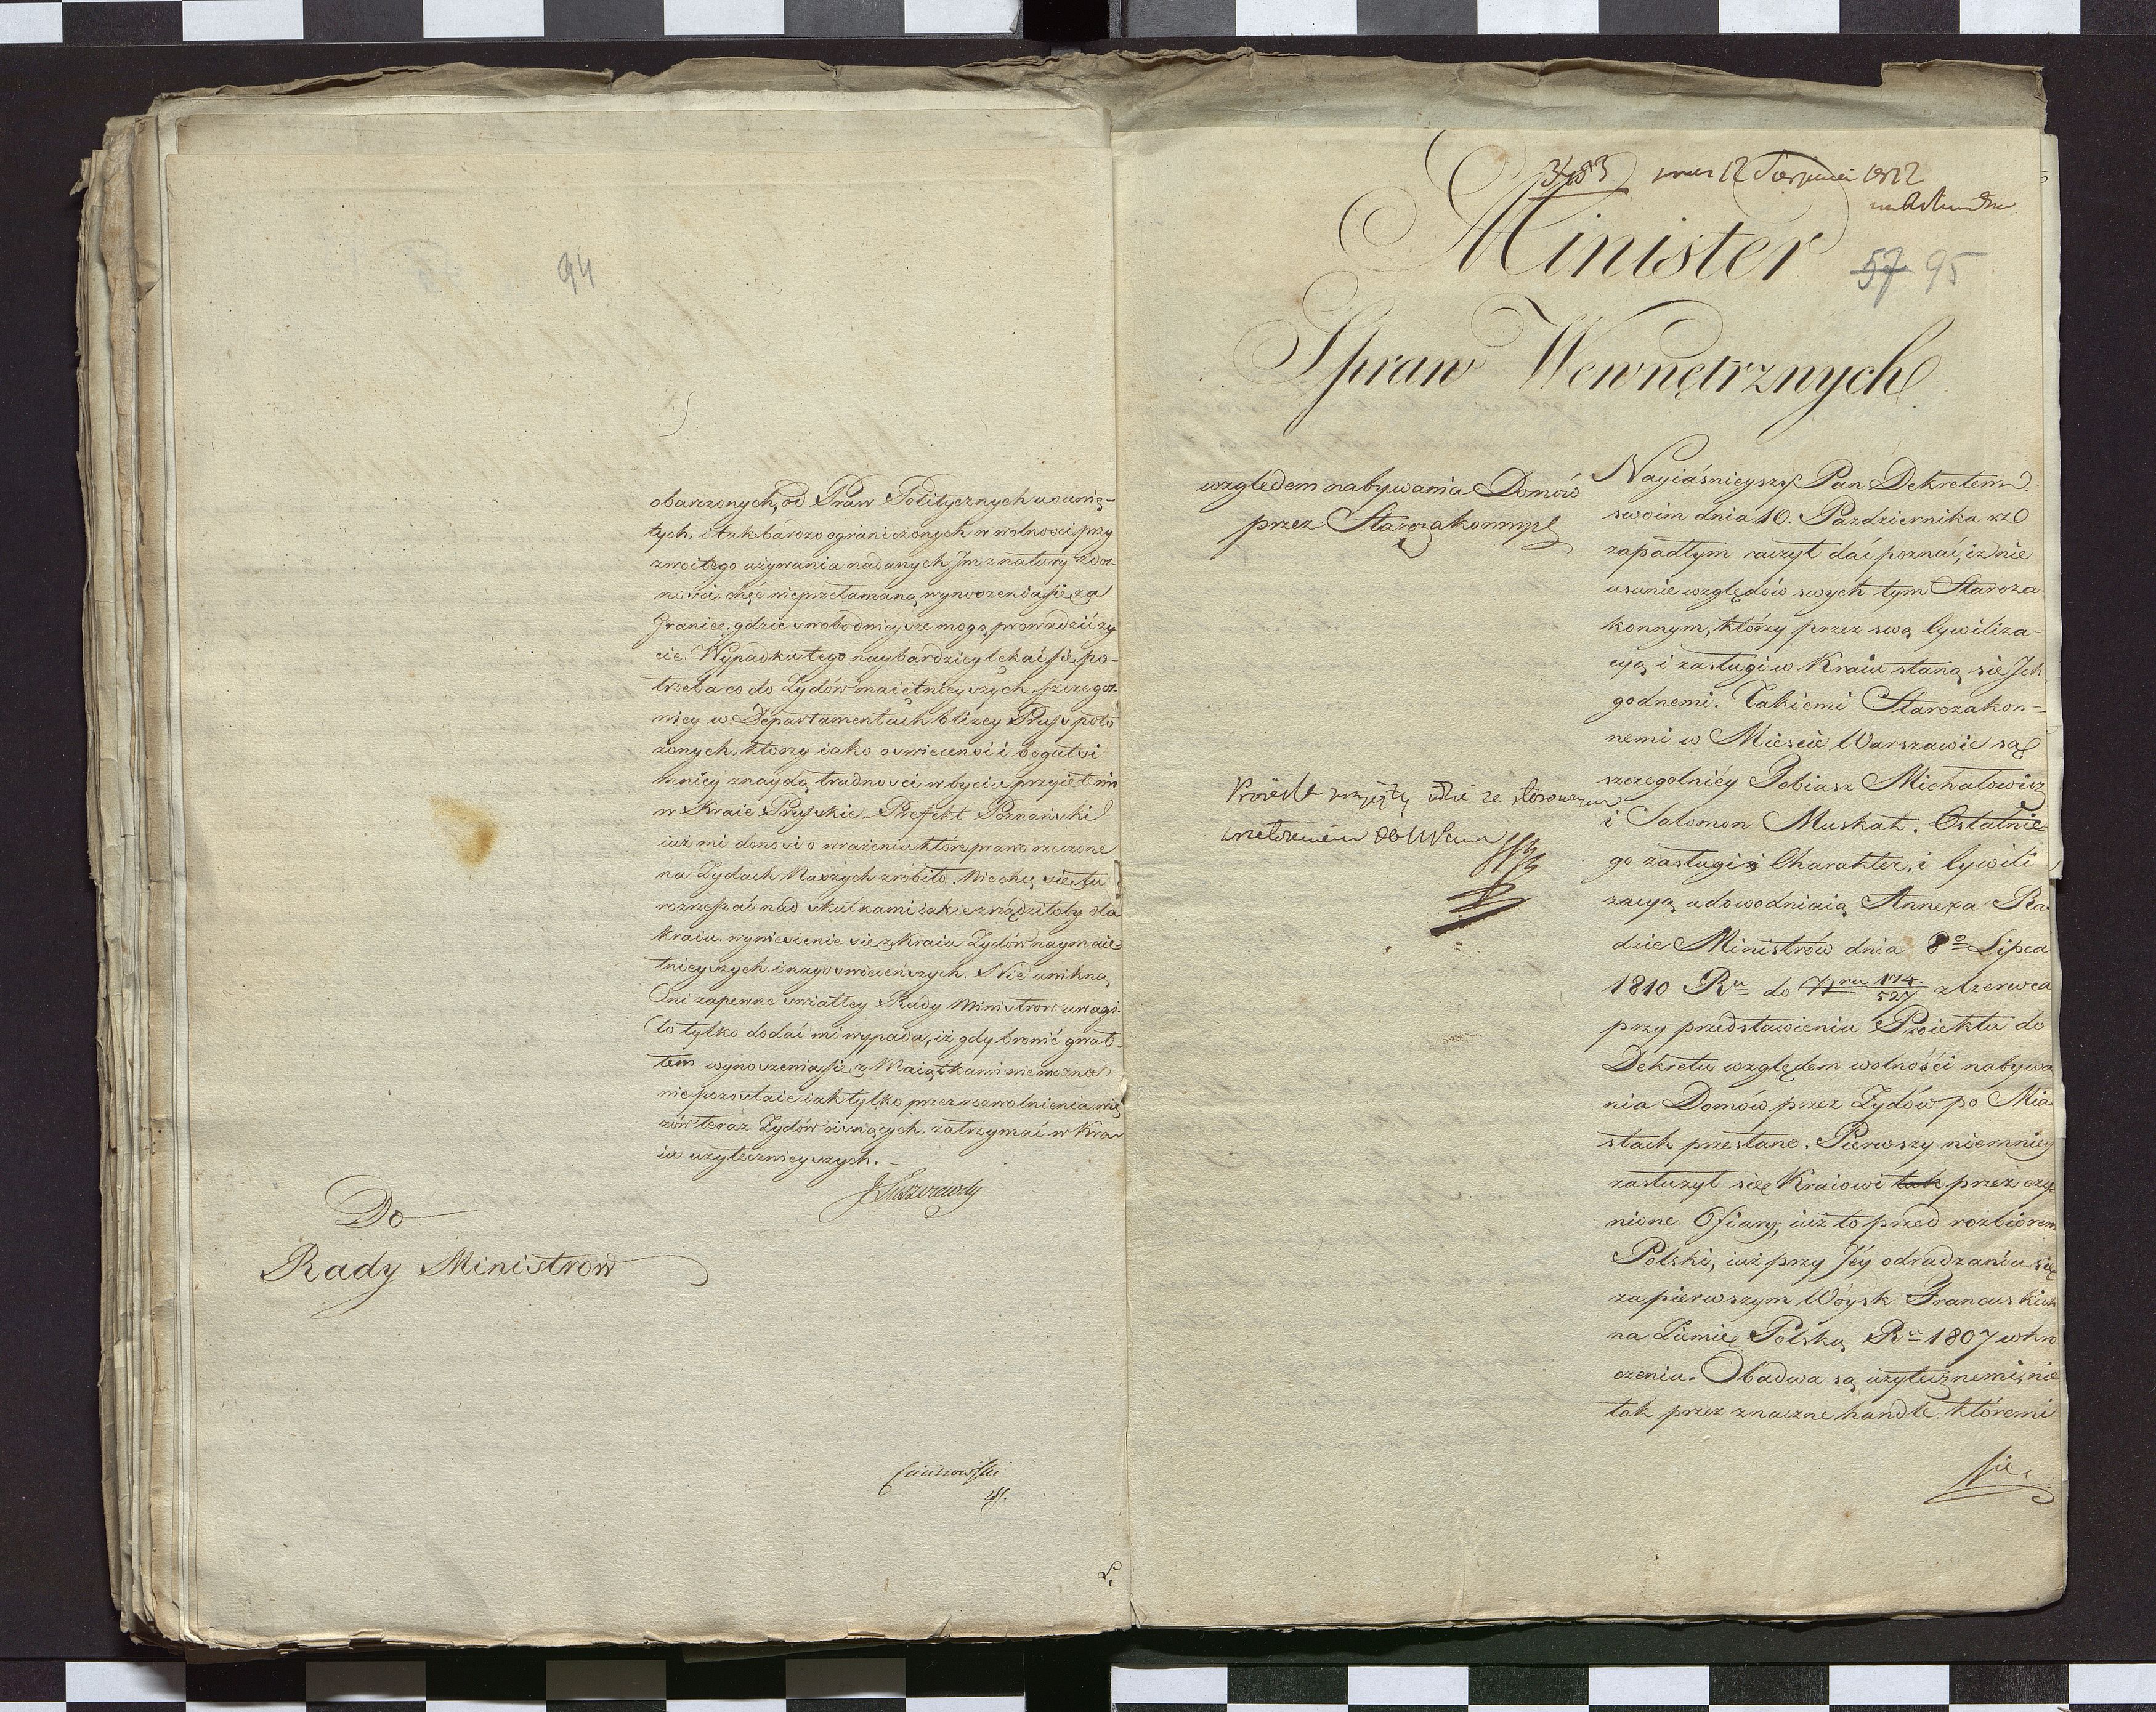 94
obarzonych, od Praw Politycznych usunię-
tych, i tak bárdzo ograniczonych w wolności przy
zwoitego używania nadanych Jm z natury zdol-
ności, chęć nieprzełamaną wynoszenia się za
Granicę, gdzie swobodnieysze mogą prowadzić ży
cie. Wypadku tego naybardziey lękać się po-
trzeba co do Żydów maiętnieyszych, szczegól-
niey w Departamentach bliżey Pruss poło
żonych, ktorzy iako oswieceńsi i bogatsi
mniey znaydą trudności w byciu przyiętemi
w Kraie Pruskie. Prefekt Poznański
iuż mi donosi o wrażeniu które prawo rzeczone
na Żydach Naszych zrobiło. Niechcę się tu
rozwodzić nad skutkami iakie zrządziłoby dla
kraiu, wyniesienie się z Kraiu Żydów naymaię-
tnieyszych i nayoswieceńszych. Nie unikną
Oni zapewne swiatłey Rady Ministrow uwagi.
To tylko dodać mi wypada, iż gdy bronić gwał-
tem wynoszenia się z Maiątkami nie można
nie pozostaie iak tylko przez rozwolnienia wię
zów teraz Żydów cisnących, zatrzymać w Kra-
iu użytecznieyszych. -
JŁuszczewski
Do
Rady Ministrow
3483 12 Sierpnia 1812
Minister
57 95
Spraw Wewnętrznych
względem nabywania Domów
przez Starozakonnych
Nayiaśnieyszy Pan Dekretem
swoim dnia 10. Pazdziernika
zapadłym raczył dać poznać, iż nie
usunie względów swych tym Staroza-
konnym, którzy przez swą Cywiliza-
cyą i zasługi w Kraiu staną się Ich
godnemi. Takiemi Starozakon-
nemi w Mieście Warszawie są
szczegolniéy Tobiasz Michałowicz
i Salomon Muskat. Ostatnie-
go zasługi Charakter, i Cywili
zacyą udowodniaią Annexa Ra-
dzie Ministrów dnia 8º Lipca
1810 Ru do Nru 174/527 z Czerwca
przy przedstawieniu Proiektu do
Dekretu względem wolności nabywa
nia Domów przez Żydów po Mia-
stach przesłane. Pierwszy niemniey
zasłużył się Kraiowi tak przez czy
nione Ofiary, iuż to przed rozbiorem
Polski, iuż przy Jéy odradzaniu się
za pierwszym Woysk Francuskich
na Ziemię Polską Ru 1807 wkro
czeniu. Obadwa są użytecznemi, nie
tak przez znaczne handle, któremi
się